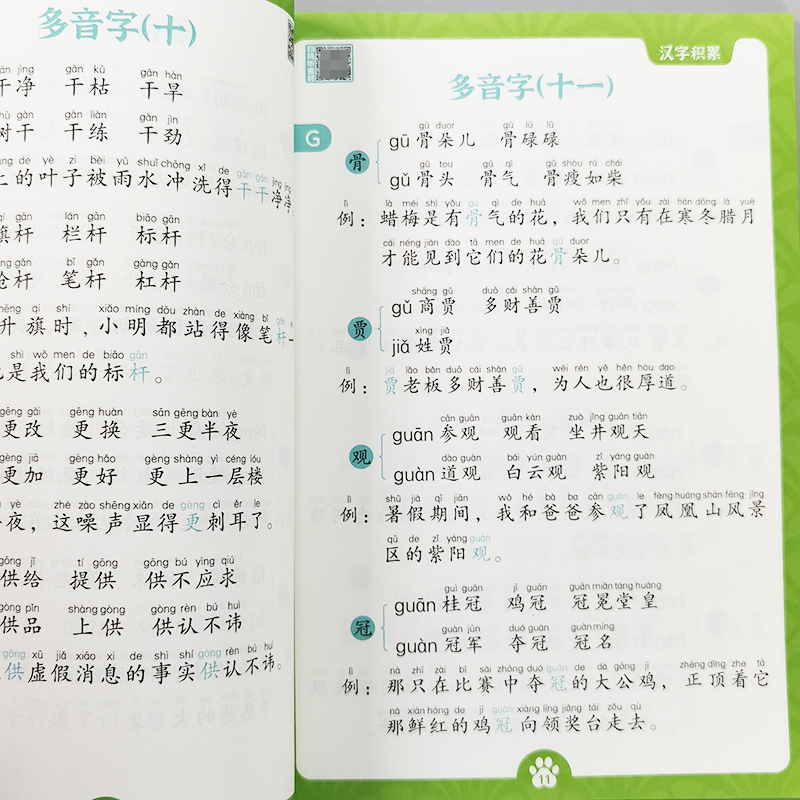 多音字(十)
gān kū gān hàn
干净 干枯 干旱
gàn liàn gàn jìn
树干 干练 干劲
de yè zi bèi yǔ shuǐ chōng xǐ de gān gān jìng jìng
上的叶子被雨水冲洗得干干净净
lán gān biāo gān
旗杆 栏杆 标杆
bǐ gǎn gàng gǎn
枪杆 笔杆 杠杆
qí shí xiǎo míng dōu zhàn de xiàng bǐ gǎn
升旗时，小明都站得像笔杆
shì wǒ men de biāo gān
也是我们的标杆。
gēng gǎi gēng huàn sān gēng bàn yè
更改 更换 三更半夜
gèng jiā gèng hǎo gèng shàng yì céng lóu
更加 更好 更上一层楼
yè zhè zào shēng xiǎn de gèng cì ěr le
夜，这噪声显得更刺耳了。
gōng jǐ tí gōng gōng bù yìng qiú
供给 提供 供不应求
gòng pǐn shàng gòng gòng rèn bú huì
供品 上供 供认不讳
gòng xū jiǎ xiāo xi de shì shí gòng rèn bú huì
供虚假消息的事实供认不讳。
汉字积累
多音字(十一)
G
骨
gū duor gū lù lù
gū 骨朵儿 骨碌碌
gǔ tou gǔ qì gǔ shòu rú chái
gǔ 骨头 骨气 骨瘦如柴
lì là méi shì yǒu gǔ qì de huā wǒ men zhǐ yǒu zài hán dōng là yuè
例：蜡梅是有骨气的花，我们只有在寒冬腊月
cái néng jiàn dào tā men de huā gū duor
才能见到它们的花骨朵儿。
贾
shāng gǔ duō cái shàn gǔ
gǔ 商贾 多财善贾
xìng jiǎ
jiǎ 姓贾
lì jiǎ lǎo bǎn duō cái shàn gǔ wéi rén yě hěn hòu dao
例：贾老板多财善贾，为人也很厚道。
观
cān guān guān kàn zuò jǐng guān tiān
guān 参观 观看 坐井观天
dào guàn bái yún guàn zǐ yáng guàn
guàn 道观 白云观 紫阳观
lì shǔ jià qī jiān wǒ hé bà ba cān guān le fèng huáng shān fēng jǐng
例：暑假期间，我和爸爸参观了凤凰山风景
qū de zǐ yáng guàn
区的紫阳观。
冠
guì guān jī guān guān miǎn táng huáng
guān 桂冠 鸡冠 冠冕堂皇
guàn jūn duó guàn guàn míng
guàn 冠军 夺冠 冠名
lì nà zhī zài bǐ sài zhōng duó guàn de dà gōng jī zhèng dǐng zhe tā
例：那只在比赛中夺冠的大公鸡，正顶着它
nà xiān hóng de jī guān xiàng lǐng jiǎng tái zǒu qù
那鲜红的鸡冠向领奖台走去。
11